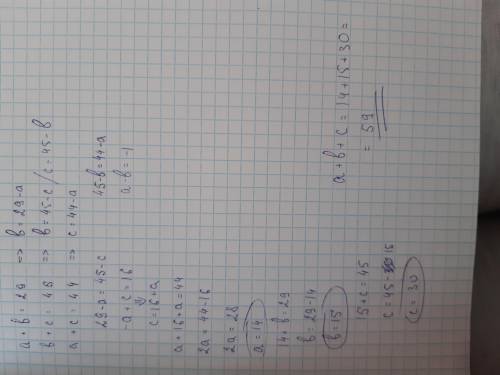 a + b = 29 => b = 29-a
b + c = 45 => b = 45-c / c = 45-b
a + c = 44 => c = 44-a
29-a = 45-c 45-b = 44-a
a + c = 16 a-b = -1
c = 16+a
a + 16 + a = 44
2a = 44-16
2a = 28
a = 14
14 + b = 29
b = 29-14
b = 15
15 + c = 45
c = 45-15
c = 30
a + b + c = 14 + 15 + 30 =
= 59